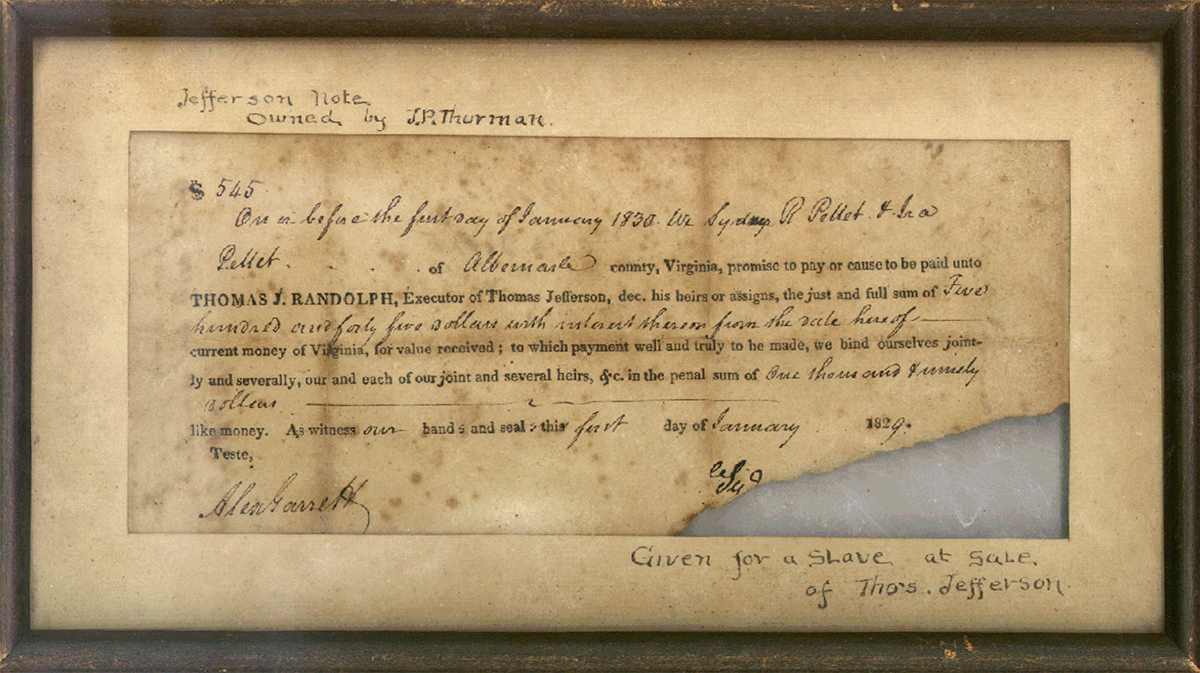 Jefferson Note
Owned by J.P. Thurman.
$ 545
On or before the first day of January 1830. We Sydney R Pellet & Ira
Pellet. of Albemarle county, Virginia, promise to pay or cause to be paid unto
THOMAS J. RANDOLPH, Executor of Thomas Jefferson, dec. his heirs or assigns, the just and full sum of Five
hundred and forty five dollars with interest thereon from the date hereof
current money of Virginia, for value received; to which payment well and truly to be made, we bind ourselves joint-
ly and severally, our and each of our joint and several heirs, &c. in the penal sum of One thousand & ninety
dollars
like money. As witness our hands and seals this first day of January 1829.
Teste,
Alex Garrett
Given for a Slave at Sale
of Tho's. Jefferson.